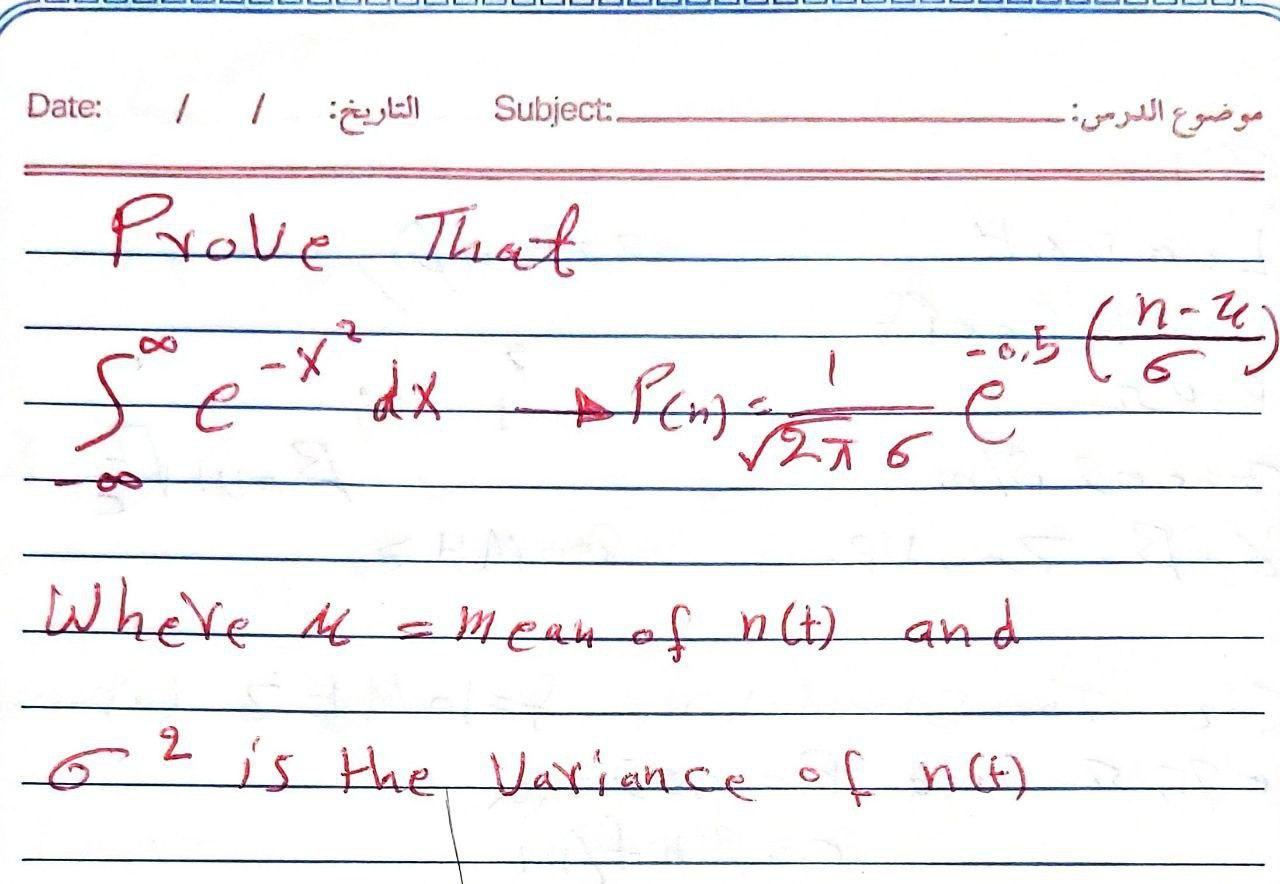 Date: / / التاريخ: Subject: موضوع الدرس:
Prove That
∫_{-∞}^{∞} e^{-x^2} dx → P(n) = \frac{1}{\sqrt{2π} σ} e^{-0.5 (\frac{n-μ}{σ})}
Where μ = mean of n(t) and
σ^2 is the Variance of n(t)